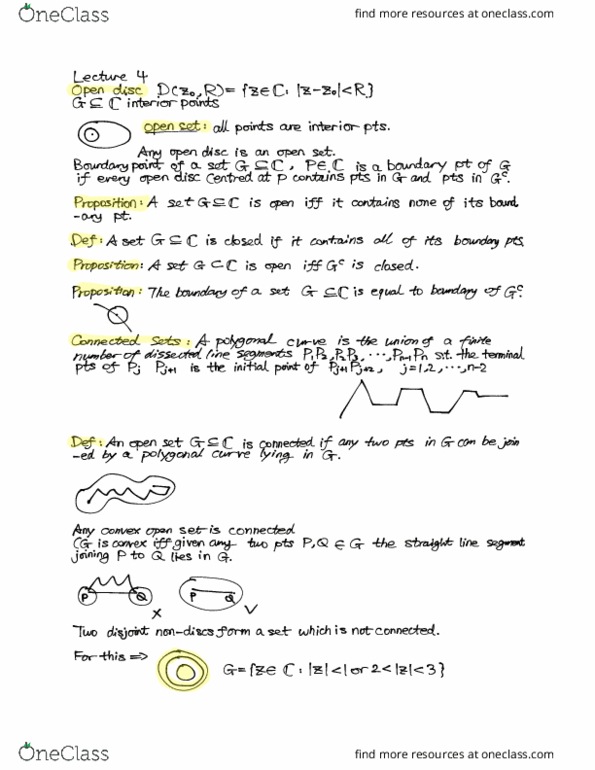 OneClass
find more resources at oneclass.com
Lecture 4
Open disc D(z₀,R)= {z∈ℂ: |z-z₀|<R}
G⊆ℂ interior points
open set: all points are interior pts.
Any open disc is an open set.
Boundary point of a set G⊆ℂ, P∈ℂ is a boundary pt of G
if every open disc centred at p contains pts in G and pts in Gᶜ.
Proposition: A set G⊆ℂ is open iff it contains none of its bound
-ary pt.
Def: A set G⊆ℂ is closed if it contains all of its boundary pts.
Proposition: A set G⊂ℂ is open iff Gᶜ is closed.
Proposition: The boundary of a set G⊆ℂ is equal to boundary of Gᶜ.
Connected Sets: A polygonal curve is the union of a finite
number of dissected line segments P₁P₂,P₂P₃, ···,Pₙ₋₁Pₙ s.t. the terminal
pts of Pj Pj+1 is the initial point of Pj+1Pj+2, j=1,2, ···,n-2
Def: An open set G⊆ℂ is connected if any two pts in G can be join
-ed by a polygonal curve lying in G.
Any convex open set is connected
(G is convex iff given any two pts P,Q ∈ G the straight line segment
joining P to Q lies in G.
P Q P Q
x v
Two disjoint non-discs form a set which is not connected.
For this ⇒ G={z∈ ℂ: |z|<1 or 2<|z|<3}
OneClass
find more resources at oneclass.com